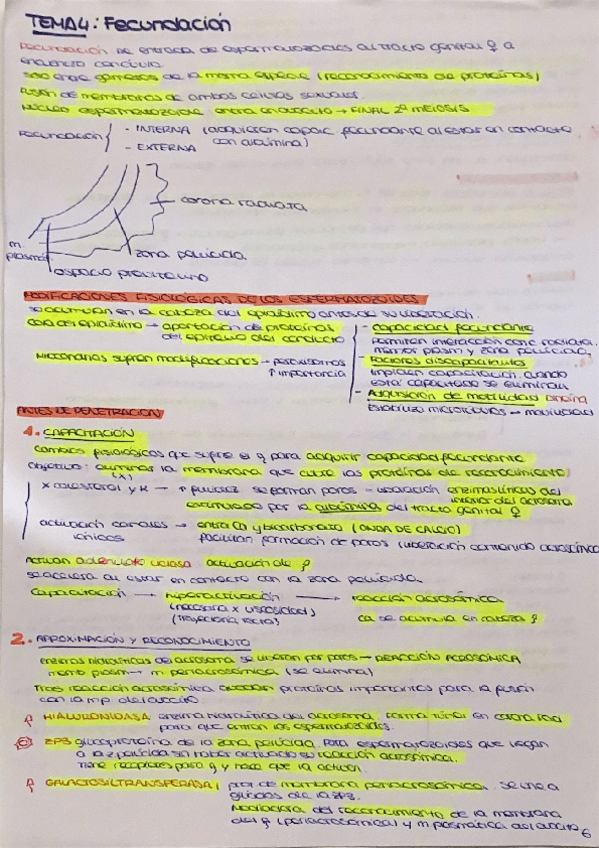 TEMA 4: Fecundación
Fecundación de entrada de espermatozoides al tracto genital ♀ a
encuentro con óvulo.
Solo entre gametos de la misma especie (reconocimiento de proteínas)
Fusión de membranas de ambas células sexuales.
Núcleo espermatozoide entra en ovocito → FINAL 2ª MEIOSIS
Fecundación
- INTERNA (adquieren capac. fecundante al estar en contacto
con albúmina)
- EXTERNA
corona radiata
m. plasmát.
zona pelúcida
espacio previtelino
MODIFICACIONES FISIOLÓGICAS DE LOS ESPERMATOZOIDES
Se acumulan en la cabeza del epidídimo antes de su liberación.
→ aportación de proteínas
del epitelio del conducto
- capacidad fecundante
Permiten interacción con c. radiata,
memb plasm y zona pelúcida.
- Factores discapacitantes
Impiden capacitación. Cuando
está capacitado se eliminan
Necesarias sufran modificaciones → peroxisomas
↑ importancia
- Adquisición de motilidad
Estabiliza microtúbulos → movilidad
ANTES DE PENETRACIÓN
1. CAPACITACIÓN
Cambios fisiológicos que sufre el para adquirir capacidad fecundante
Objetivo: eliminar la membrana que cubre las proteínas de reconocimiento
(x)
x colesterol y → ↑ fluidez se forman poros - liberación enzimas líticas del
interior del acrosoma
estimulado por la albúmina del tracto genital ♀
activación canales
iónicos
→ entra Ca y bicarbonato (ONDA DE CALCIO)
facilitan formación de poros (liberación contenido acrosómico
Activan adenilato ciclasa activación de
se acelera al estar en contacto con la zona pelúcida.
Capacitación → hiperactivación → reacción acrosómica
(necesaria x viscosidad)
(trayectoria recta)
Ca se acumula en cabeza
2. APROXIMACIÓN Y RECONOCIMIENTO
enzimas hidrolíticas de acrosoma se liberan por poros → REACCIÓN ACROSÓMICA
memb plasm → m. periacrosómica (se elimina)
Tras reacción acrosómica quedan proteínas importantes para la fusión
con la mp del ovocito.
HIALURONIDASA enzima hidrolítica del acrosoma, forma túnel en corona rad
para que entren los espermatozoides.
ZP3 glucoproteína de la zona pelúcida. Para espermatozoides que llegan
a la z pelúcida sin haber activado su reacción acrosómica.
Tiene receptores para y hace que la activen.
GALACTOSILTRANSFERASA, prot de membrana periacrosómica. Se une a
glúcidos de la ZP3.
Mediadora del reconocimiento de la membrana
del (periacrosómica) y m plasmática del ovocito
6